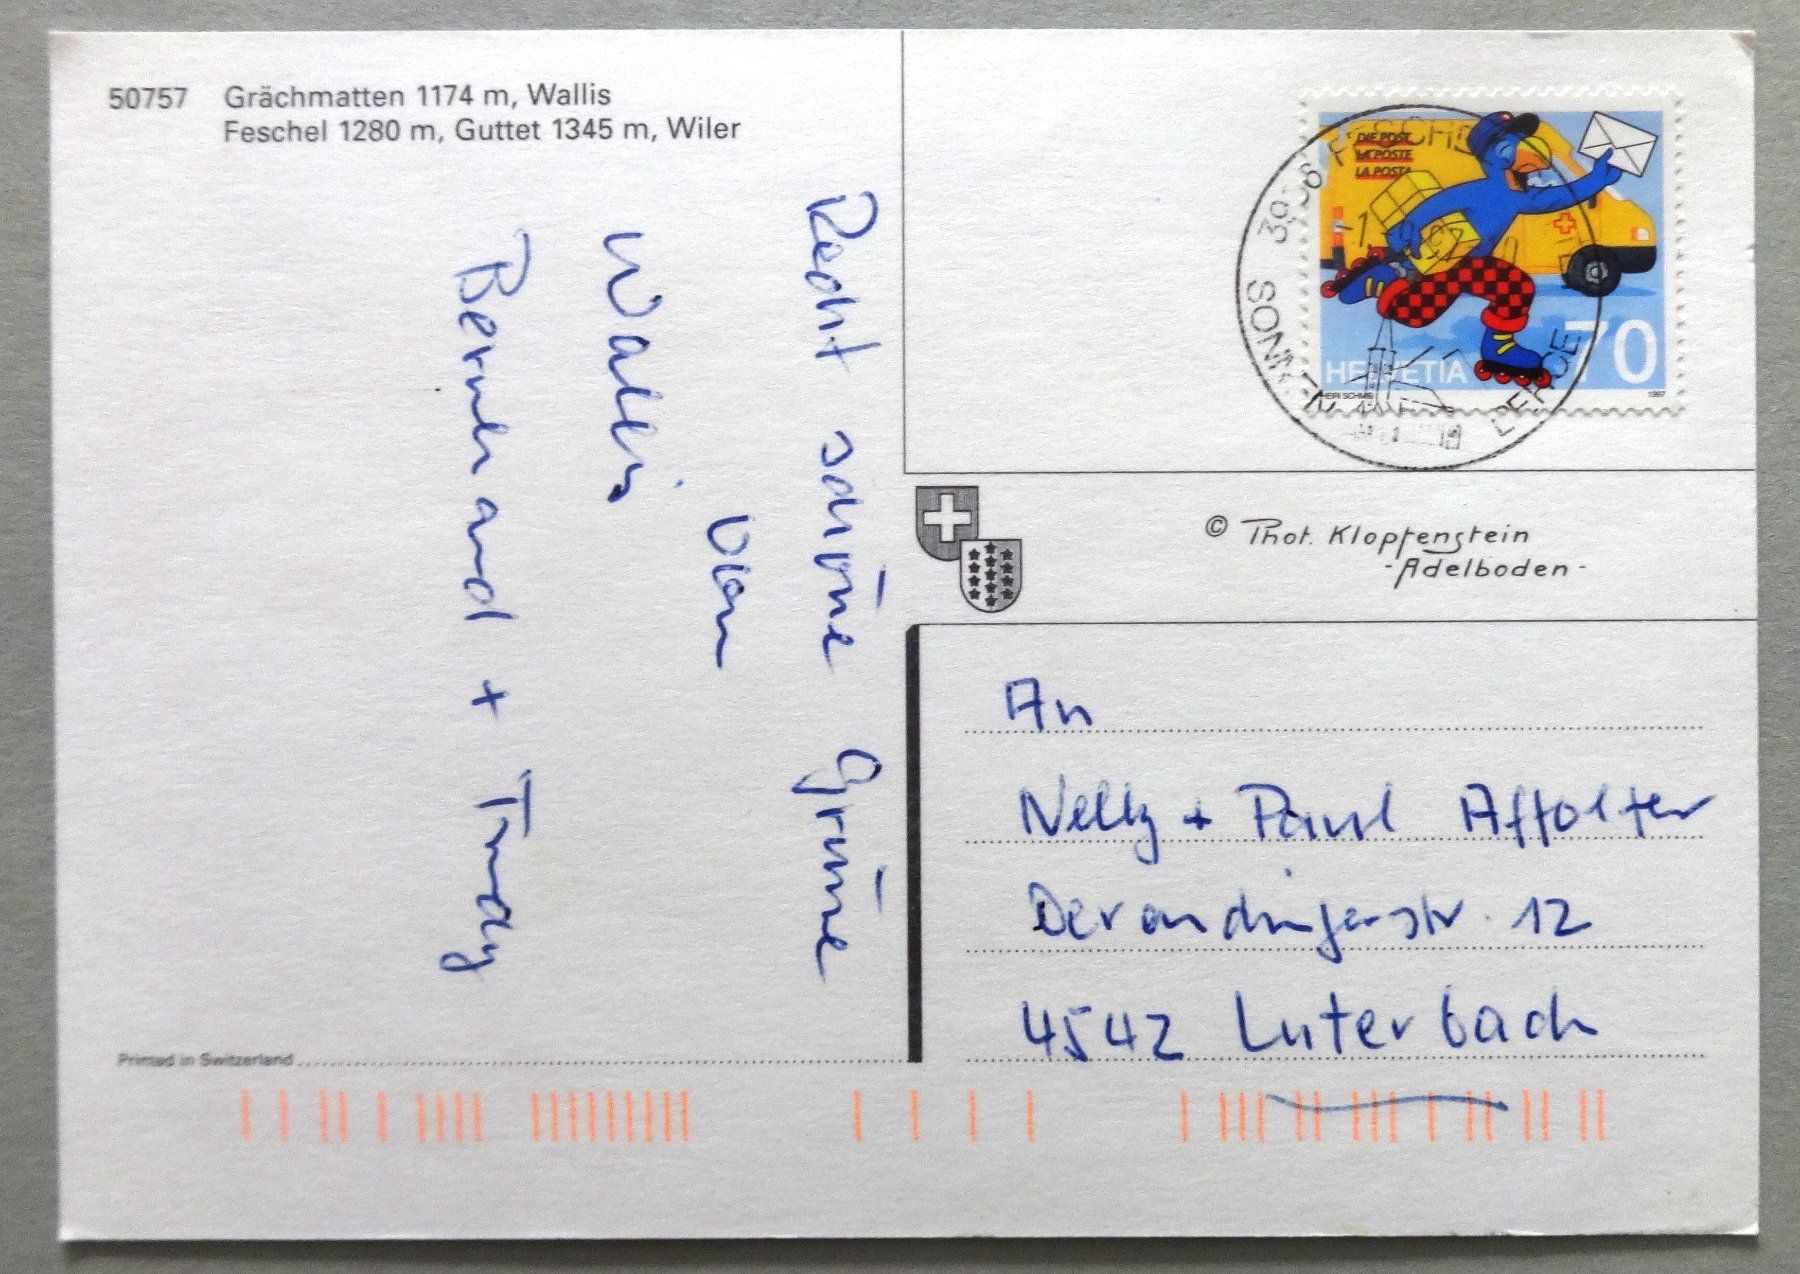 50757 Grächmatten 1174 m, Wallis
Feschel 1280 m, Guttet 1345 m, Wiler
Recht schöne Grüsse
von
Wallis
Bernhard + Trudy
Printed in Switzerland
DIE POST
LA POSTE
LA POSTA
HELVETIA 70
1997
SONNEN
© Phot. Klopfenstein
- Adelboden -
An
Nelly + Paul Affolter
Derendingerstr. 12
4542 Luterbach